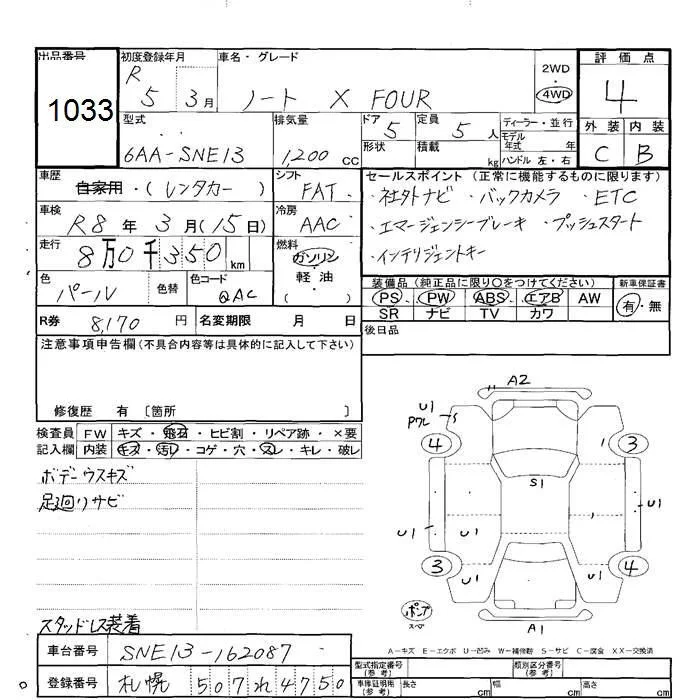 出品番号
1033
初度登録年月
R 5 3 月
車名・グレード
ノート X FOUR
2WD
・
4WD
評価点
4
型式
6AA-SNE13
排気量
1,200 CC
ドア 5
形状
定員 5 人
積載 kg
ディーラー・並行
モデル
年式 年
ハンドル 左・右
外装 内装
C B
車歴
自家用・(レンタカー)
シフト
FAT
車検
R8 年 3 月(15 日)
冷房
AAC
走行
8 万 0 千 350 km
燃料
ガソリン
・
軽油
・
( )
色
パール
色替
色コード
QAC
R券 8,170 円
名変期限 月 日
セールスポイント (正常に機能するものに限ります)
・社外ナビ ・バックカメラ ・ETC
・エマージェンシーブレーキ ・プッシュスタート
・インテリジェントキー
装備品 (純正品に限り○をつけてください)
新車保証書
PS PW ABS エアB AW
SR ナビ TV カワ
有・無
後日品
注意事項申告欄(不具合内容等は具体的に記入して下さい)
修復歴 有 〔箇所 〕
検査員
記入欄
FW キズ・飛石・ヒビ割・リペア跡・×要
内装 キズ・汚レ・コゲ・穴・スレ・キレ・破レ
ボデーウスキズ
足廻りサビ
スタッドレス装着
A2
U1
4
3
S1
U1
U1
U1
U1
3
4
U1
U1
A1
A-キズ E-エクボ U-凹み W-補修跡 S-サビ C-腐食 XX-交換済
車台番号 SNE13-162087
登録番号 札幌 507 れ 4750
型式指定番号
(参考)
類別区分番号
(参考)
車庫証明用
(参考)
長さ cm
幅 cm
高さ cm